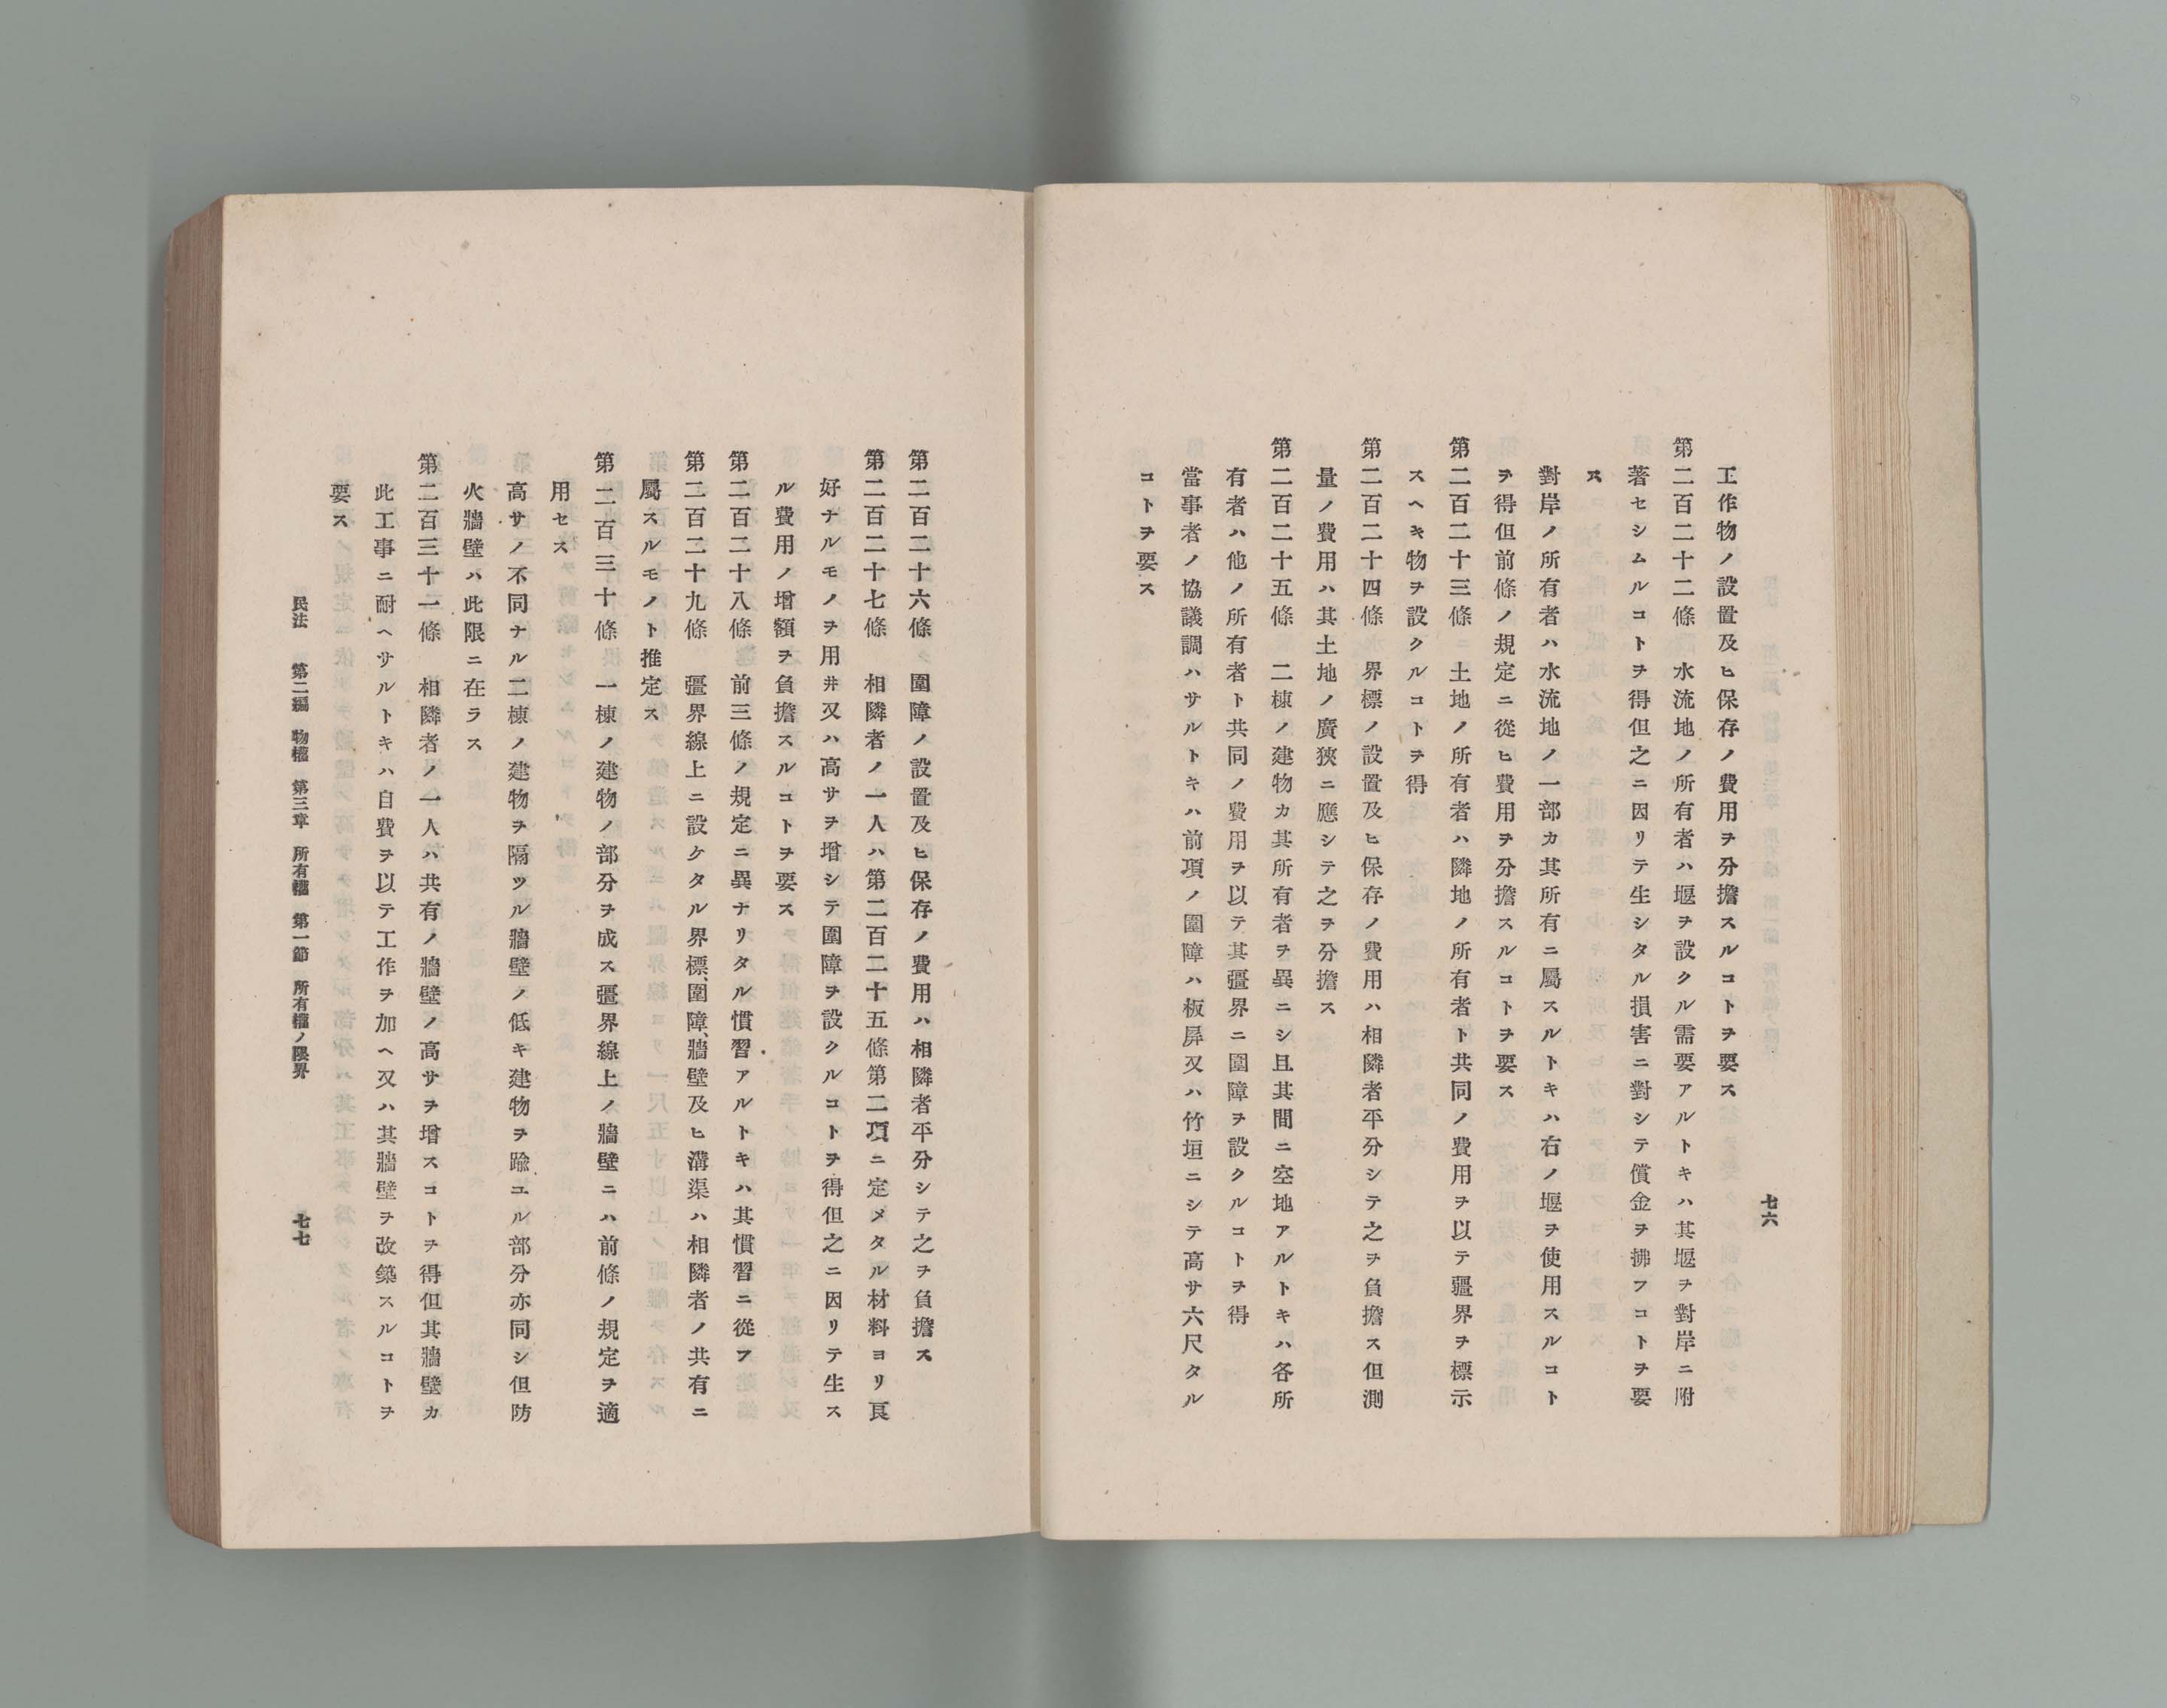 七六
工作物ノ設置及ヒ保存ノ費用ヲ分擔スルコトヲ要ス
第二百二十二條　水流地ノ所有者ハ堰ヲ設クル需要アルトキハ其堰ヲ對岸ニ附
著セシムルコトヲ得但之ニ因リテ生シタル損害ニ對シテ償金ヲ拂フコトヲ要
ス
對岸ノ所有者ハ水流地ノ一部カ其所有ニ屬スルトキハ右ノ堰ヲ使用スルコト
ヲ得但前條ノ規定ニ從ヒ費用ヲ分擔スルコトヲ要ス
第二百二十三條　土地ノ所有者ハ隣地ノ所有者ト共同ノ費用ヲ以テ疆界ヲ標示
スヘキ物ヲ設クルコトヲ得
第二百二十四條　界標ノ設置及ヒ保存ノ費用ハ相隣者平分シテ之ヲ負擔ス但測
量ノ費用ハ其土地ノ廣狹ニ應シテ之ヲ分擔ス
第二百二十五條　二棟ノ建物カ其所有者ヲ異ニシ且其間ニ空地アルトキハ各所
有者ハ他ノ所有者ト共同ノ費用ヲ以テ其疆界ニ圍障ヲ設クルコトヲ得
當事者ノ協議調ハサルトキハ前項ノ圍障ハ板屏又ハ竹垣ニシテ高サ六尺タル
コトヲ要ス
第二百二十六條　圍障ノ設置及ヒ保存ノ費用ハ相隣者平分シテ之ヲ負擔ス
第二百二十七條　相隣者ノ一人ハ第二百二十五條第二項ニ定メタル材料ヨリ良
好ナルモノヲ用井又ハ高サヲ增シテ圍障ヲ設クルコトヲ得但之ニ因リテ生ス
ル費用ノ增額ヲ負擔スルコトヲ要ス
第二百二十八條　前三條ノ規定ニ異ナリタル慣習アルトキハ其慣習ニ從フ
第二百二十九條　疆界線上ニ設ケタル界標、圍障、牆壁及ヒ溝渠ハ相隣者ノ共有ニ
屬スルモノト推定ス
第二百三十條　一棟ノ建物ノ部分ヲ成ス疆界線上ノ牆壁ニハ前條ノ規定ヲ適
用セス
高サノ不同ナル二棟ノ建物ヲ隔ツル牆壁ノ低キ建物ヲ踰ユル部分亦同シ但防
火牆壁ハ此限ニ在ラス
第二百三十一條　相隣者ノ一人ハ共有ノ牆壁ノ高サヲ增スコトヲ得但其牆壁カ
此工事ニ耐ヘサルトキハ自費ヲ以テ工作ヲ加ヘ又ハ其牆壁ヲ改築スルコトヲ
要ス
民法　第二編　物權　第三章　所有權　第一節　所有權ノ限界
七七